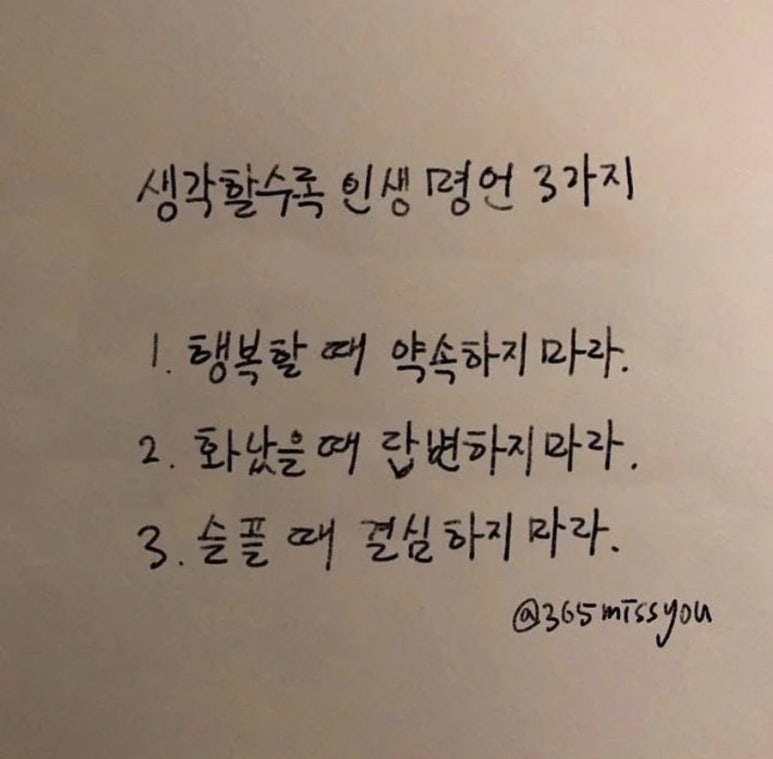 생각할수록 인생 명언 3가지
1. 행복할 때 약속하지 마라.
2. 화났을 때 답변하지 마라.
3. 슬플 때 결심하지 마라.
@365missyou